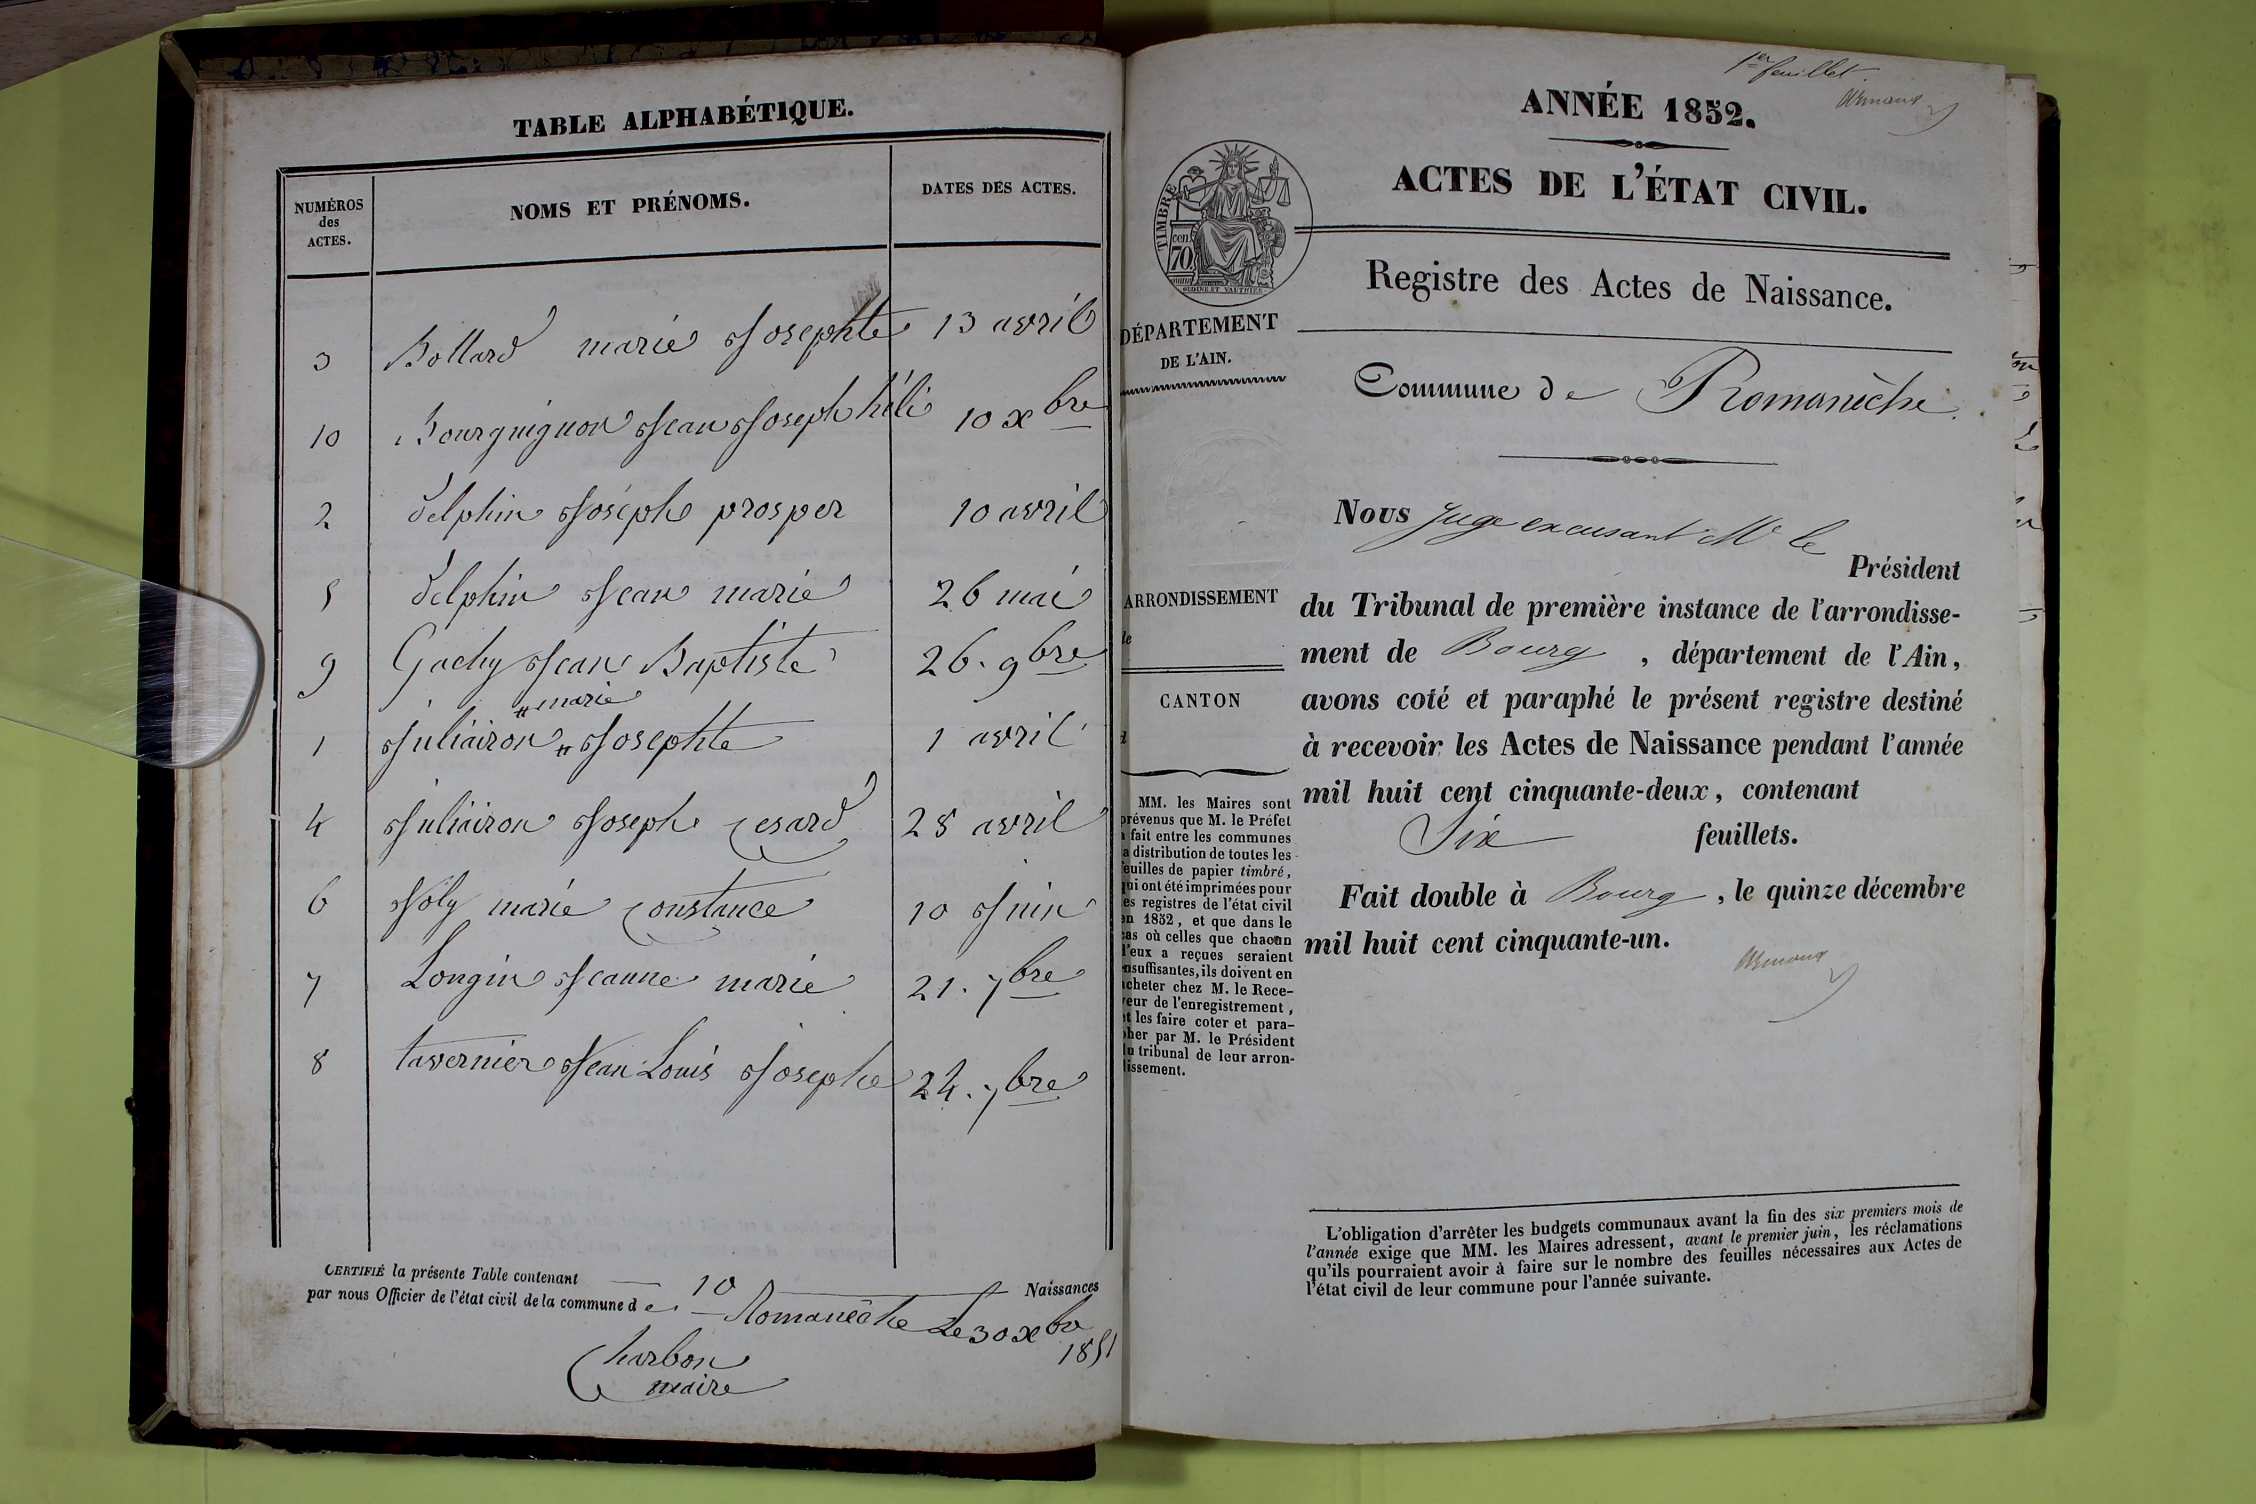 TABLE ALPHABÉTIQUE.
NUMÉROS
des
ACTES.
NOMS ET PRÉNOMS.
DATES DES ACTES.
3 Bollard marie Josephte 13 avril
10 Bourguignon Jean Joseph héli 10 xbre
2 delphin Joséph prosper 10 avril
5 delphin Jean marie 26 mai
9 Gachy Jean Baptiste 26. 9bre
# marie
1 Juliairon # Josephte 1 avril
4 Juliairon Joseph Cesard 28 avril
6 Joly marie Constance 10 Juin
7 Longin Jeanne marie 21. 7bre
8 tavernier Jean Louis Joseph 24. 7bre
CERTIFIÉ la présente Table contenant 10 Naissances
par nous Officier de l'état civil de la commune de Romanêche Le 30 xbre
1851
Charbon
maire
1er feuillet.
ANNÉE 1852.
ACTES DE L'ÉTAT CIVIL.
TIMBRE
cen.
70
OUDINE ET VAUTHIER
Registre des Actes de Naissance.
DÉPARTEMENT
DE L'AIN.
Commune de Romanèche.
Nous Juge excusant Mr le
Président
ARRONDISSEMENT
de
CANTON
du Tribunal de première instance de l'arrondisse-
ment de Bourg, département de l'Ain,
avons coté et paraphé le présent registre destiné
à recevoir les Actes de Naissance pendant l'année
mil huit cent cinquante-deux, contenant
Six feuillets.
Fait double à Bourg, le quinze décembre
mil huit cent cinquante-un.
MM. les Maires sont
prévenus que M. le Préfet
a fait entre les communes
la distribution de toutes les
feuilles de papier timbré,
qui ont été imprimées pour
les registres de l'état civil
en 1852, et que dans le
cas où celles que chacun
d'eux a reçues seraient
insuffisantes, ils doivent en
acheter chez M. le Rece-
veur de l'enregistrement,
et les faire coter et para-
pher par M. le Président
du tribunal de leur arron-
dissement.
L'obligation d'arrêter les budgets communaux avant la fin des six premiers mois de
l'année exige que MM. les Maires adressent, avant le premier juin, les réclamations
qu'ils pourraient avoir à faire sur le nombre des feuilles nécessaires aux Actes de
l'état civil de leur commune pour l'année suivante.